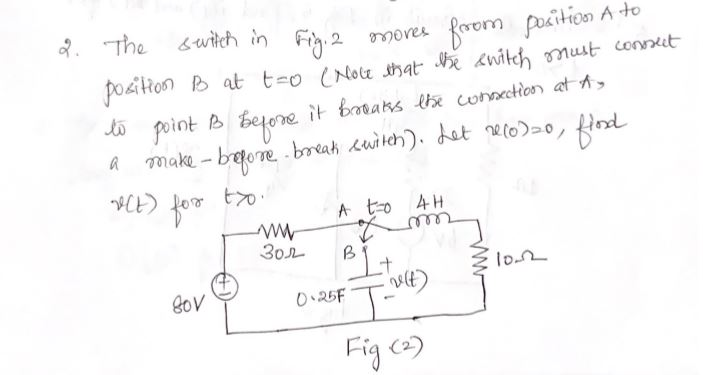 2. The switch in Fig.2 moves from position A to
position B at t=0 (Note that the switch must connect
to point B before it breaks the connection at A,
a make-before-break switch). Let v(0)=0, find
v(t) for t>0.
A t=0 4H
30Ω B 10Ω
+
80V 0.25F v(t)
-
Fig (2)